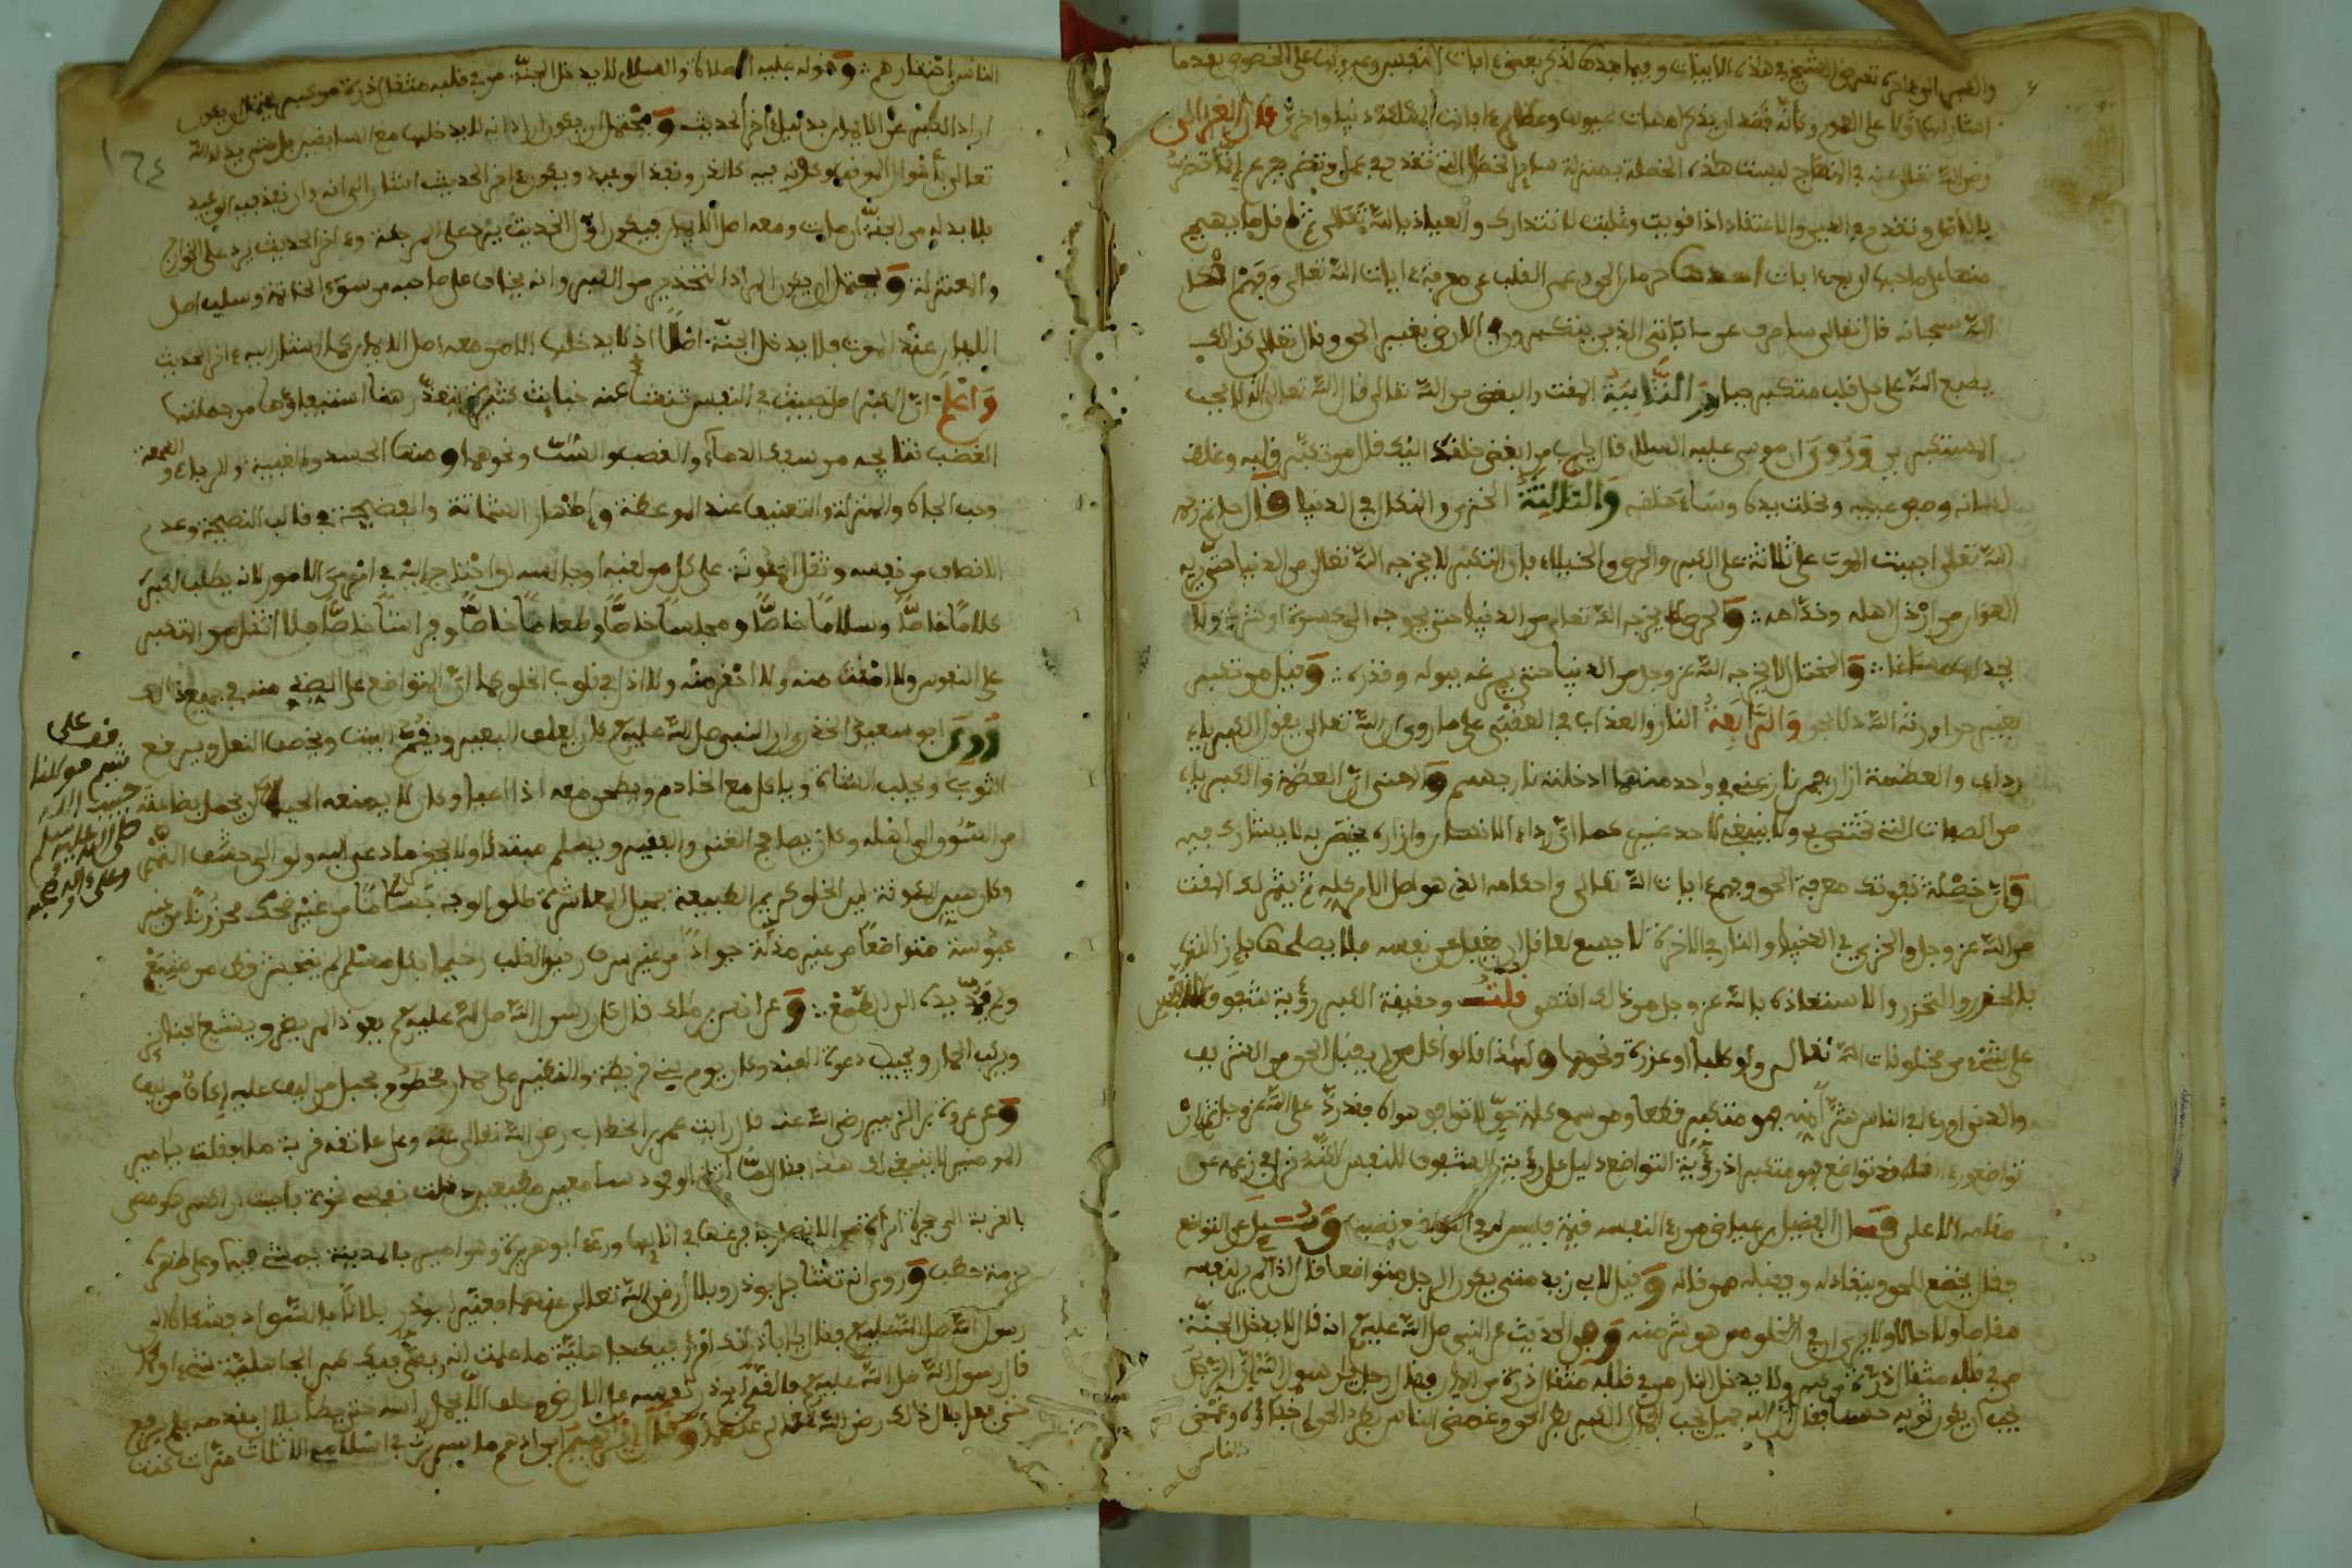 والكبر الى اخره تعرض الشيخ في هذه الابيات وفيما بعدها لذكر بعض افات النفس وعيوبها على الخصوص بعد ما
اشار اليها اولا على العموم وكانه قصد ان يذكر امهات عيوب وعظائم افات المهلكة دنيا واخرى قال الغزالي
رضي الله تعالى عنه في المنهاج ليست هذه الخصلة بمنزلة ساير الخصال التي تقدح في عمل وتضر بفرع انما تضر
بالاصل وتقدح في الدين والاعتقاد اذا قويت وغلبت لا تتدارك والعياذ بالله تعالى ثم اقل ما يهيج
منها على صاحبها اربع افات احدها حرمان الحق وعمى القلب عن معرفة ايات الله تعالى وفهم احكام
الله سبحانه قال تعالى ساصرف عن ءاياتي الذين يتكبرون في الارض بغير الحق وقال تعالى كذلك
يطبع الله على كل قلب متكبر جبار والثانية المقت والبغض من الله تعالى قال الله تعالى انه لا يحب
المستكبرين وروي ان موسى عليه السلام قال يا رب من ابغض خلقك اليك قال من تكبر قلبه وغلظ
لسانه وصفق عينيه وبخلت يده وساء خلقه والثالثة الخزي والنكال في الدنيا قال حاتم رحمه
الله تعالى اجتنب الموت على ثلاثة على الكبر والحرص والخيلاء فان المتكبر لا يخرجه الله تعالى من الدنيا حتى يريه
الهوان من ارذل اهله وخدامه والحريص لا يخرجه الله تعالى من الدنيا حتى يحوجه الى كسرة او شربة ولا
يجد مساغا والمختال لا يخرجه الله عز وجل من الدنيا حتى يمرغه ببوله وقذره وقيل من تكبر
بغير حق اورثه الله ذلا بحق والرابعة النار والعذاب في العقبى على ما روي ان الله تعالى يقول الكبرياء
ردائي والعظمة ازاري فمن نازعني في واحد منهما ادخلته نار جهنم والمعنى ان العظمة والكبرياء
من الصفات التي تختص بي ولا ينبغي لاحد غيري كما ان رداء الانسان وازاره يختص به لا يشارك فيه
وان خصلة تفوتك معرفة الحق وفهم ايات الله تعالى واحكامه الذي هو اصل الامر كله ثم يثمر لك المقت
من الله عز وجل والخزي في الدنيا والنار في الاخرة لا يسع لعاقل ان يغفل عن نفسه فلا يصلحها بازالتها
بالحذر والتحرز والاستعاذة بالله عز وجل من ذلك انتهى قلت وحقيقة الكبر رؤية شفوف النفس
على شيء من مخلوقات الله تعالى ولو كلبا او عذرة ونحوها ولهذا قالوا كل من لم يقبل الحق من الشريف
والدني او رءا في الناس شرا منه فهو متكبر قطعا ومن سمع كلمة حق لا توافق هواه فقد رد على الله عز وجل ثم ان
تواضع ورءا انه قد تواضع فهو متكبر اذ رؤية التواضع دليل على رؤية الشفوف للنفس لكنه نزل في زعمه عن
مقامه الاعلى قال الفضيل بن عياض من رءا لنفسه قيمة فليس له في التواضع نصيب وسئل عن التواضع
فقال يخضع للحق وينقاد له ويقبله ممن قاله وقيل لابي زيد متى يكون الرجل متواضعا قال اذا لم ير لنفسه
مقاما ولا حالا ولا يرى ان في الخلق من هو شر منه وفي الحديث عن النبي صلى الله عليه وسلم انه قال لا يدخل الجنة
من في قلبه مثقال ذرة من كبر ولا يدخل النار من في قلبه مثقال ذرة من ايمان فقال رجل يا رسول الله ان الرجل
يحب ان يكون ثوبه حسنا فقال ان الله جميل يحب الجمال الكبر بطر الحق وغمص الناس
الناس
الناس احتقارهم وقوله عليه الصلاة والسلام لا يدخل الجنة من في قلبه مثقال ذرة من كبر يحتمل ان يكون
اراد الكبر عن الايمان بدليل اخر الحديث ويحتمل ان يكون اراد انه لا يدخلها مع السابقين بل حتى يدله الله
تعالى باهوال الموقف وكونه فيه كالذر ونفذ الوعيد ويكون اخر الحديث اشار الى انه وان نفذ فيه الوعيد
فلا بد له من الجنة ان مات ومعه اصل الايمان فيكون اول الحديث يرد على المرجئة واخر الحديث يرد على الخوارج
والمعتزلة ويحتمل ان يكون المراد التحذير من الكبر وانه يخاف على صاحبه من سوء الخاتمة وسلب اصل
الايمان عند الموت فلا يدخل الجنة اصلا اذ لا يدخلها الا من معه اصل الايمان كما اشار اليه اخر الحديث
واعلم ان الكبر اصل خبيث في النفس تنشأ عنه خبائث كثيرة يتعذر هنا استيعاؤها من جملتها
الغضب نتائجه من سفك الدماء والغصب والشتم ونحوها ومنها الحسد والغيبة والرياء والسمعة
وحب الجاه والمنزلة والتعنيف عند الموعظة واظهار الشماتة والفضيحة في قالب النصيحة وعدم
الانصاف من نفسه وثقل المؤنة على كل من لقيه او جالسه او احتاج اليه في ادنى الامور لانه يطلب لكبره
كلاما خاصا وسلاما خاصا ومجلسا خاصا وطعاما خاصا وفراشا خاصا فلا اثقل من المتكبر
على النفوس ولا امقت منه ولا احقر منه ولا اذل في قلوب الخلق كما ان المتواضع على الضد منه في جميع ذلك
روى ابو سعيد الخدري ان النبي صلى الله عليه وسلم كان يعلف البعير ويقم البيت ويخصف النعل ويرقع
الثوب ويحلب الشاة وياكل مع الخادم ويطحن معه اذا اعيا وكان لا يمنعه الحياء ان يحمل بضاعته
من السوق الى اهله وكان يصافح الغني والفقير ويسلم مبتدئا ولا يحقر ما دعي اليه ولو الى حشف التمر
وكان هين المؤنة لين الخلق كريم الطبيعة جميل المعاشرة طلق الوجه بساما من غير ضحك محزونا من غير
عبوسة متواضعا من غير مذلة جوادا من غير سرف رقيق القلب رحيما بكل مسلم لم يتجشأ قط من شبع
ولم يمد يده الى طمع وعن انس بن مالك قال كان رسول الله صلى الله عليه وسلم يعود المريض ويشيع الجنائز
ويركب الحمار ويجيب دعوة العبد وكان يوم بني قريظة والنضير على حمار مخطوم بحبل من ليف عليه اكاف من ليف
وعن عروة بن الزبير رضي الله عنه قال رايت عمر بن الخطاب رضي الله تعالى عنه وعلى عاتقه قربة ماء فقلت يا امير
المومنين لا ينبغي لك هذا فقال لما اتاني الوفود سامعين مطيعين دخلت نفسي نخوة فاحببت ان اكسرها ومضى
بالقربة الى حجرة امراة من الانصار فافرغها في انائها ورءي ابو هريرة وهو امير بالمدينة يمشي فيها وعلى ظهره
حزمة حطب وروي انه تشاجر ابو ذر وبلال رضي الله تعالى عنهما فعير ابو ذر بلالا بالسواد فشكاه الى
رسول الله صلى الله عليه وسلم فقال يا ابا ذر انك امرؤ فيك جاهلية ما علمت انه بقي فيك كبر الجاهلية شيء او كما
قال رسول الله صلى الله عليه وسلم فالقى ابو ذر نفسه على الارض وحلف الا يحمل راسه حتى يطأ بلال بقدمه فلم يرفع
حتى فعل بلال ذلك رضي الله تعالى عنهما وقال ابراهيم بن ادهم ما سررت في اسلامي الا ثلاث مرات كنت
قف على
شيم مولانا
حبيب الله
صلى الله عليه وسلم
وعلى ءاله وصحبه